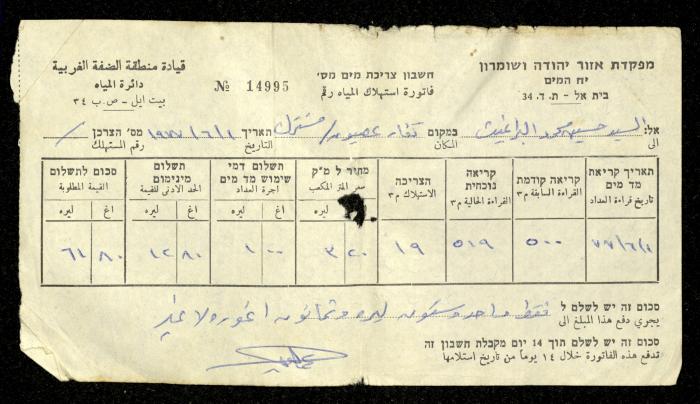 מפקדת אזור יהודה ושומרון
יח המים
בית אל - ת. ד. 34
חשבון צריכת מים מס'
فاتورة استهلاك المياه رقم
№ 14995
قيادة منطقة الضفة الغربية
دائرة المياه
بيت ايل - ص . ب ٣٤
אל: السيد حسين محمد במקום كفار عصيون / مشترك תאריך ١٩٧٧/٦/١ מס' הצרכן /
الى المكان التاريخ رقم المستهلك
תאריך קריאת מד מים
تاريخ قراءة العداد
קריאה קודמת
القراءة السابقة م٣
קריאה נוכחית
القراءة الحالية م٣
הצריכה
الاستهلاك م٣
מחיר ל מ"ק
سعر المتر المكعب
ليره
תשלום דמי שימוש מד מים
اجرة العداد
اغ ليره
תשלום מינימום
الحد الادنى للقيمة
اغ ليره
סכום לתשלום
القيمة المطلوبة
اغ ليره
٧٧/٦/١ ٥٠٠ ٥١٩ ١٩ ٣ ٢٠ ١ ٠٠ ١٢ ٨٠ ٦١ ٨٠
סכום זה יש לשלם ל فقط واحد وستون ليره وثمانون اغوره لا غير
يجري دفع هذا المبلغ الى
סכום זה יש לשלם תוך 14 יום מקבלת חשבון זה
تدفع هذه الفاتورة خلال ١٤ يوما من تاريخ استلامها